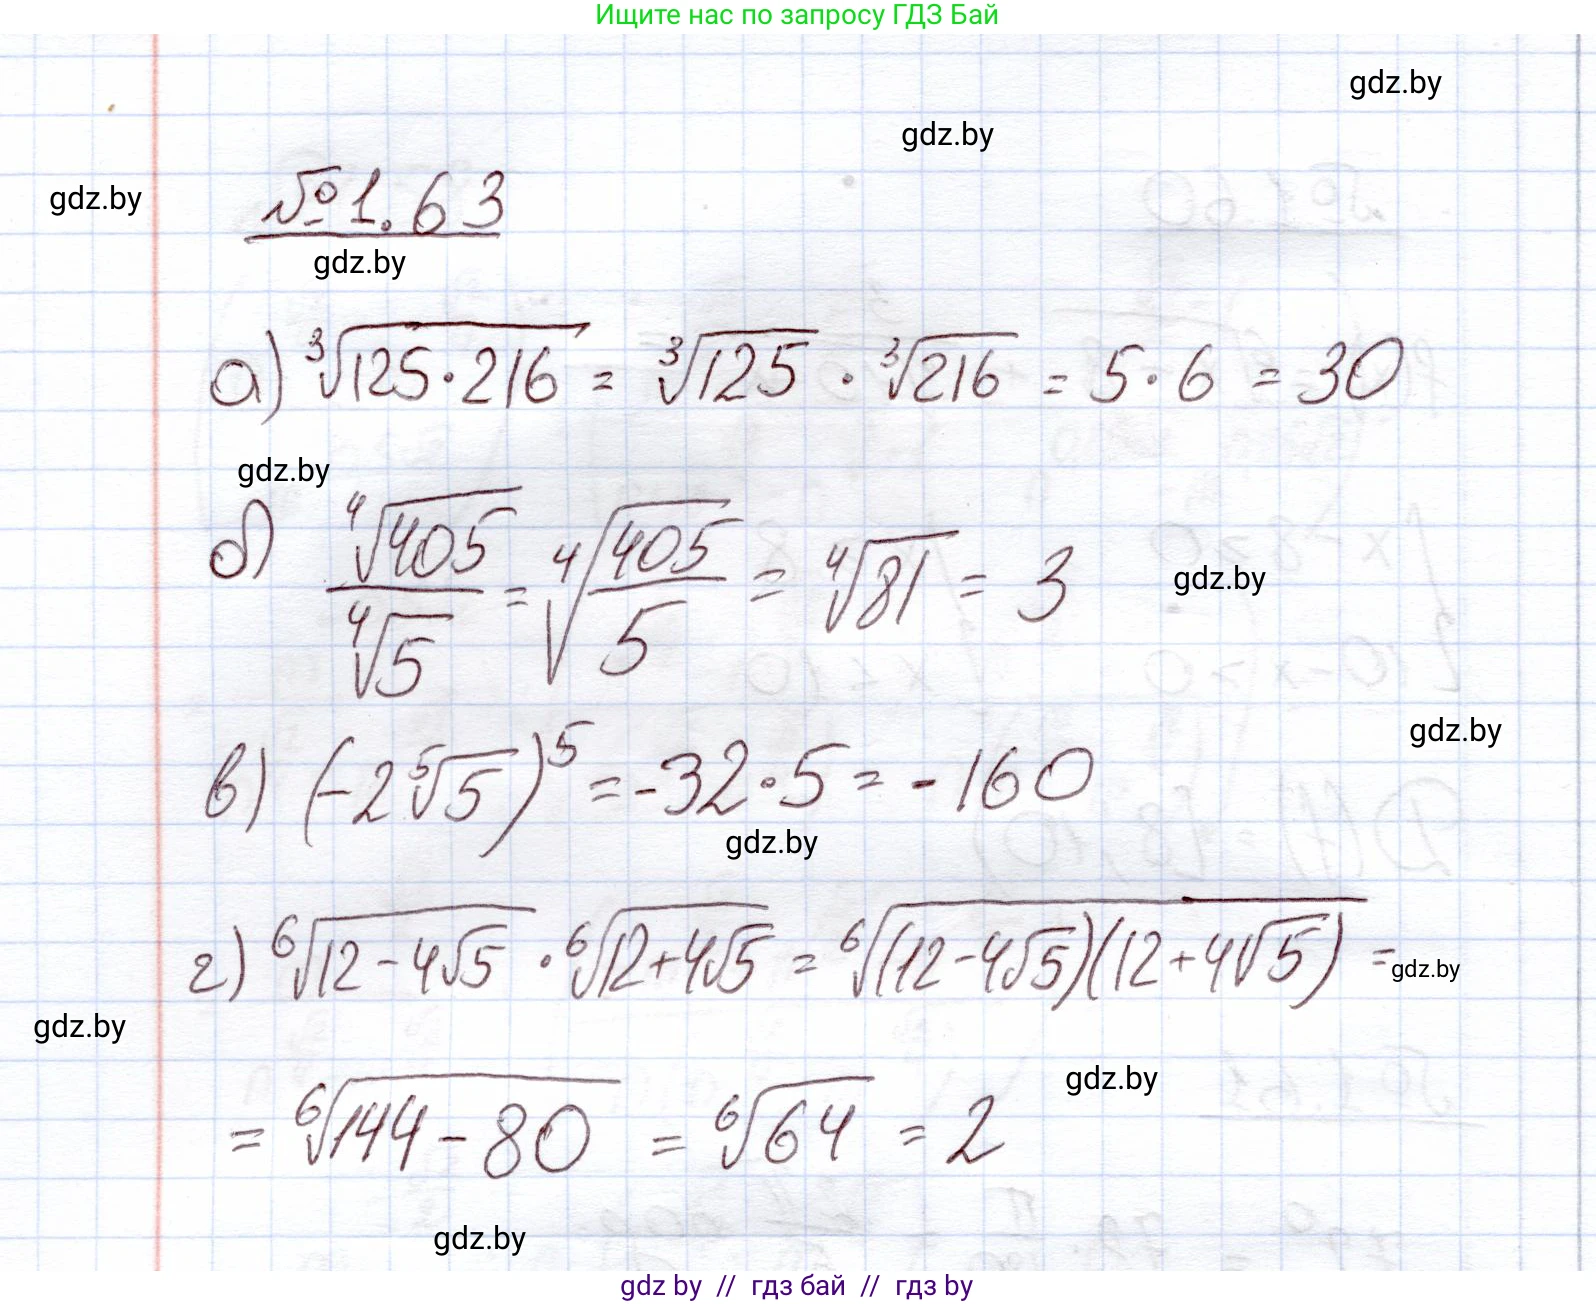 Ищите нас по запросу ГДЗ Бай
gdz.by
gdz.by
gdz.by
№1.63
gdz.by
а) ∛(125·216) = ∛125 · ∛216 = 5·6 = 30
gdz.by
б) ⁴√405 / ⁴√5 = ⁴√(405/5) = ⁴√81 = 3
gdz.by
gdz.by
в) (-2⁵√5)⁵ = -32·5 = -160
gdz.by
г) ⁶√(12-4√5) · ⁶√(12+4√5) = ⁶√((12-4√5)(12+4√5)) =
gdz.by
gdz.by
gdz.by
= ⁶√(144-80) = ⁶√64 = 2
gdz.by
gdz by // гдз бай // гдз by